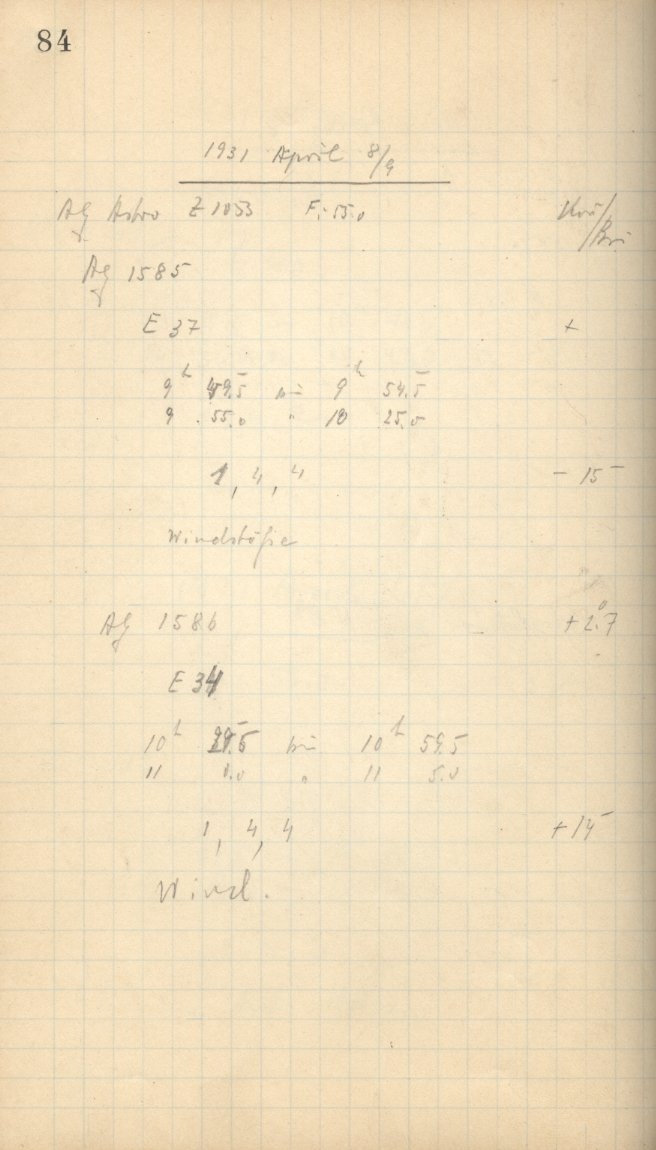 84
1931 April 8/9
AG Astro Z 1053 F: 55.0 Krü/
/Bri
AG 1585
E 37 +
9h 49.5 bis 9h 54.5
9 55.0 " 10 25.0
1, 4, 4 - 15
Windstöße
AG 1586 +2.7
E 34
10h 29.5 bis 10h 59.5
11 0.0 " 11 5.0
1, 4, 4
Wind.